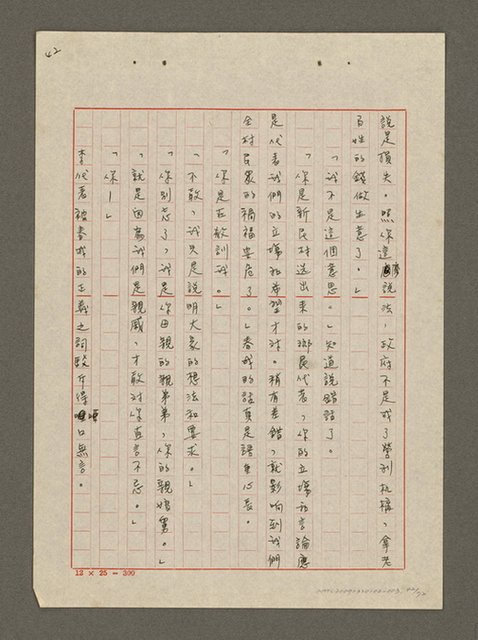 42
說是損失。照你這麼說法，政府不是成了營利机構，拿老
百姓的錢做生意了。」
「我不是這個意思。」知道說錯話了。
「你是新民村送出來的鄉民代表，你的立場和言論應
是代表我們的立場和希望才对。稍有差錯，就影响到我們
全村民眾的禍福與安危了。」春成的話真是語重心長。
「你是在教訓我。」
「不敢，我只是說明大家的想法和要求。」
「你別忘了，我是你田親的親弟弟，你的親娘舅。」
「就是因為我們是親戚，才敢对你直言不忌。」
「你！」
李代表被春成的正義之詞駁斥得啞口無言。
12 × 25 = 300